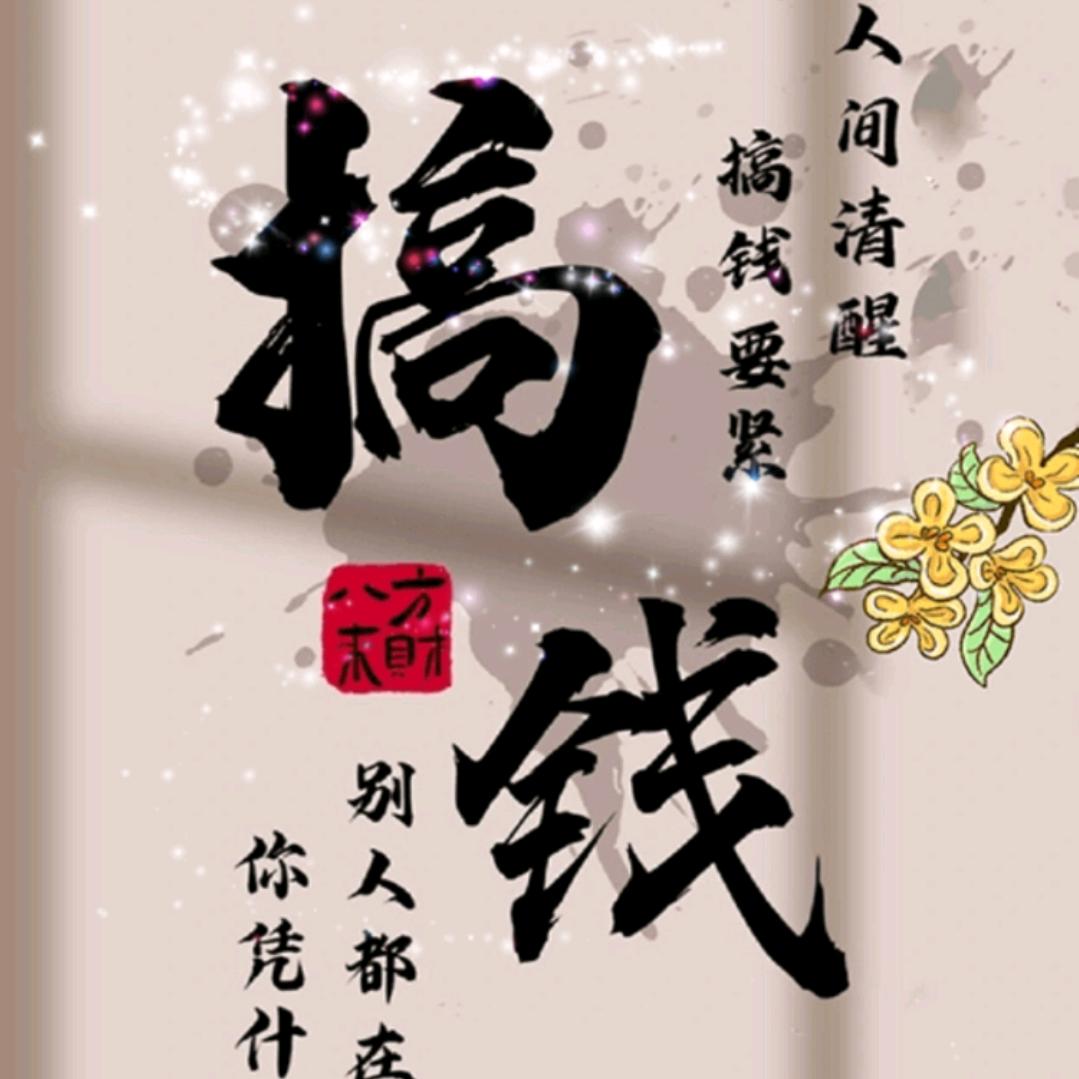 人间清醒
搞钱要紧
搞
钱
八方
来财
别人都在
你凭什